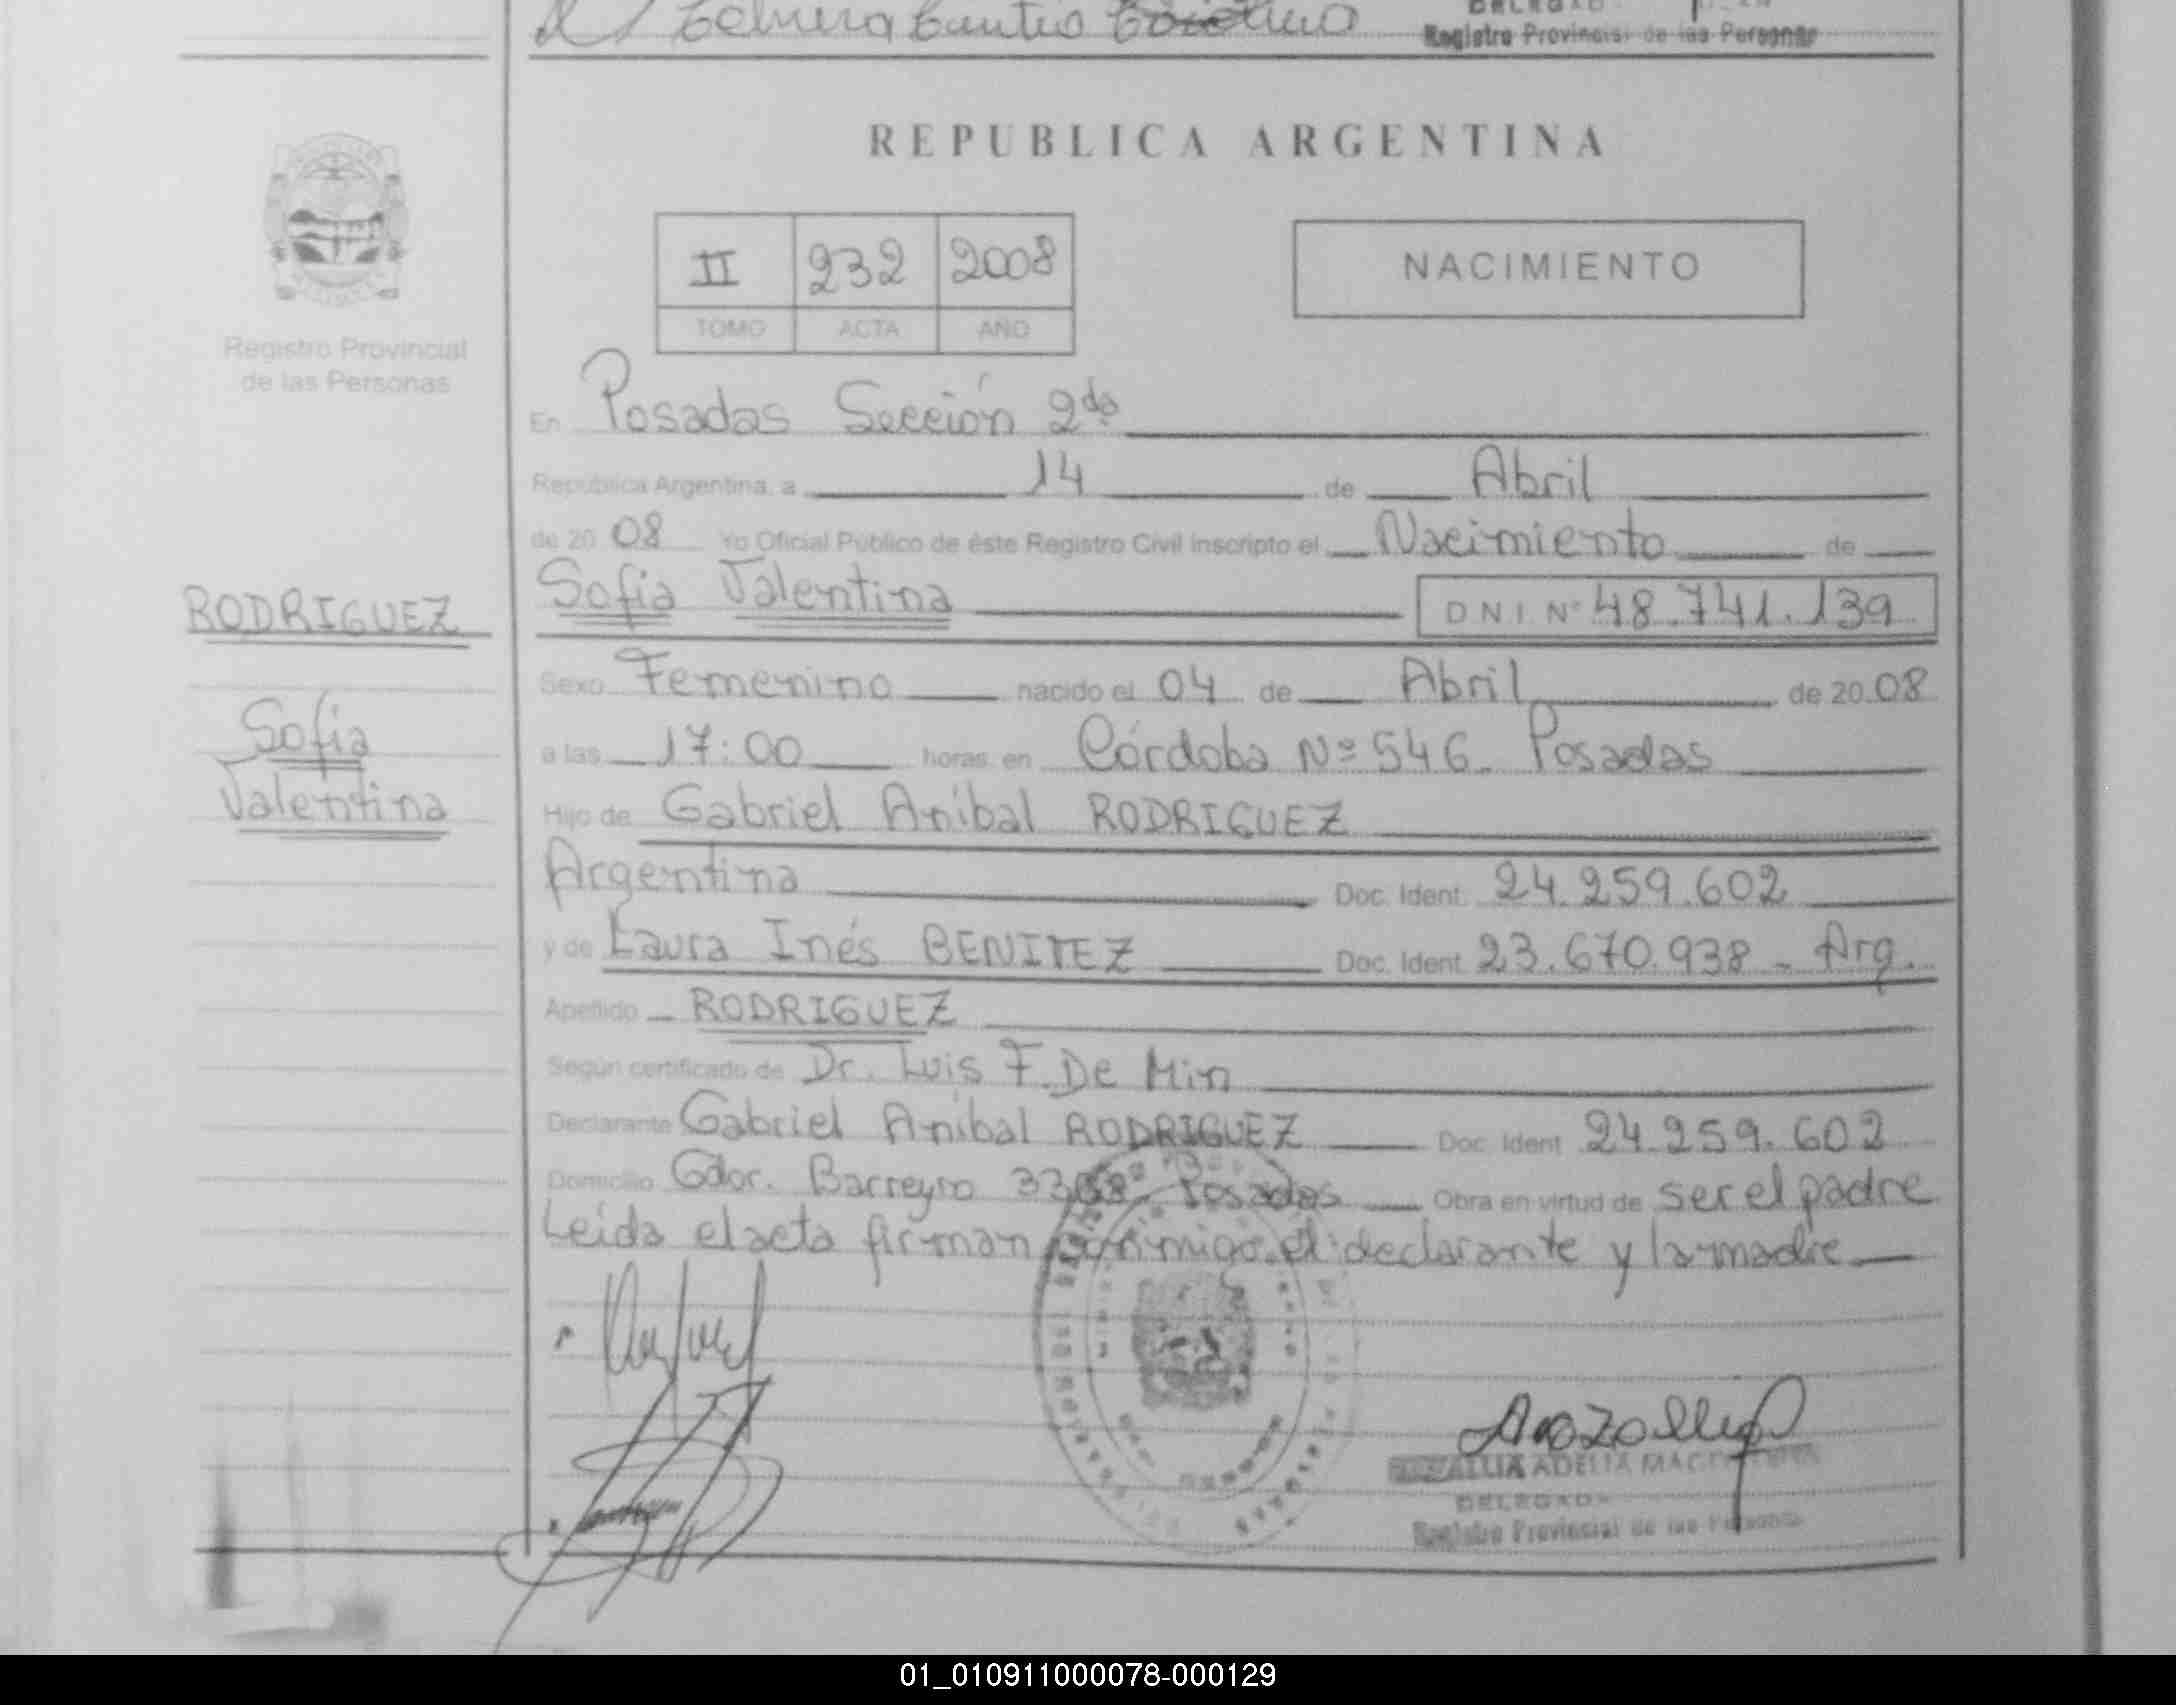 Registro Provincial de las Personas
REPUBLICA ARGENTINA
II 232 2008
TOMO ACTA AÑO
NACIMIENTO
Registro Provincial
de las Personas
En Posadas Sección 2da
República Argentina, a 14 de Abril
de 2008 Yo Oficial Público de éste Registro Civil inscripto el Nacimiento de
Sofia Valentina D N I. Nº 48.741.139
RODRIGUEZ
Sofia
Valentina
Sexo Femenino nacido el 04 de Abril de 2008
a las 17:00 horas en Córdoba Nº 546 - Posadas
Hijo de Gabriel Anibal RODRIGUEZ
Argentina Doc. Ident. 24.259.602
y de Laura Inés BENITEZ Doc. Ident. 23.670.938 - Arg.
Apellido RODRIGUEZ
Según certificado de Dr. Luis F. De Min
Declarante Gabriel Anibal RODRIGUEZ Doc. Ident 24.259.602
Domicilio Gdor. Barreyro Posadas Obra en virtud de ser el padre
Leida el acta firman conmigo el declarante y la madre
ADELIA
DELEGADA
Registro Provincial de las Personas
01_010911000078-000129